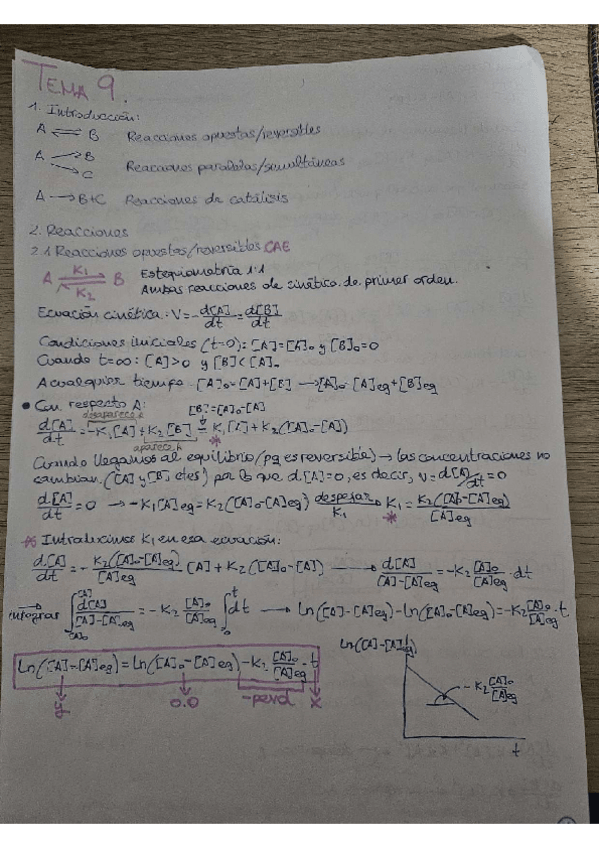 TEMA 9.
1. Introducción:
A ⇌ B Reacciones opuestas/reversibles
A → B
→ C Reacciones paralelas/simultáneas
A → B+C Reacciones de catálisis
2. Reacciones
2.1 Reacciones opuestas/reversibles CAE
A ⇌ B K1 K2 Estequiometría 1:1
Ambas reacciones de cinética de primer orden.
Ecuación cinética: V = -d[A]/dt = d[B]/dt
Condiciones iniciales (t=0): [A]=[A]₀ y [B]₀=0
Cuando t=∞: [A]>0 y [B]<[A]₀
A cualquier tiempo - [A]₀=[A]+[B] → [A]₀=[A]eq+[B]eq
• Con respecto A: [B]=[A]₀-[A]
desaparece A
d[A]/dt = -K₁[A]+K₂[B] = K₁[A]+K₂([A]₀-[A])
aparece A *
Cuando llegamos al equilibrio (pq es reversible) → las concentraciones no
cambian. ([A] y [B] ctes) por lo que d[A]=0, es decir, v=d[A]/dt=0
d[A]/dt=0 → -K₁[A]eq=K₂([A]₀-[A]eq) despejar K₁ → K₁=K₂([A]₀-[A]eq)/[A]eq
*
* Introducimos K₁ en esa ecuación:
d[A]/dt=-K₂([A]₀-[A]eq)/[A]eq [A]+K₂([A]₀-[A]) → d[A]/[A]-[A]eq=-K₂[A]₀/[A]eq·dt
integrar ∫[A]₀[A] d[A]/[A]-[A]eq = -K₂ [A]₀/[A]eq ∫₀t dt → Ln([A]-[A]eq)-Ln([A]₀-[A]eq)=-K₂[A]₀/[A]eq·t.
Ln([A]-[A]eq)=Ln([A]₀-[A]eq)-K₂ [A]₀/[A]eq·t
y o.o -pend x
Ln([A]-[A]eq)
-K₂[A]₀/[A]eq
t